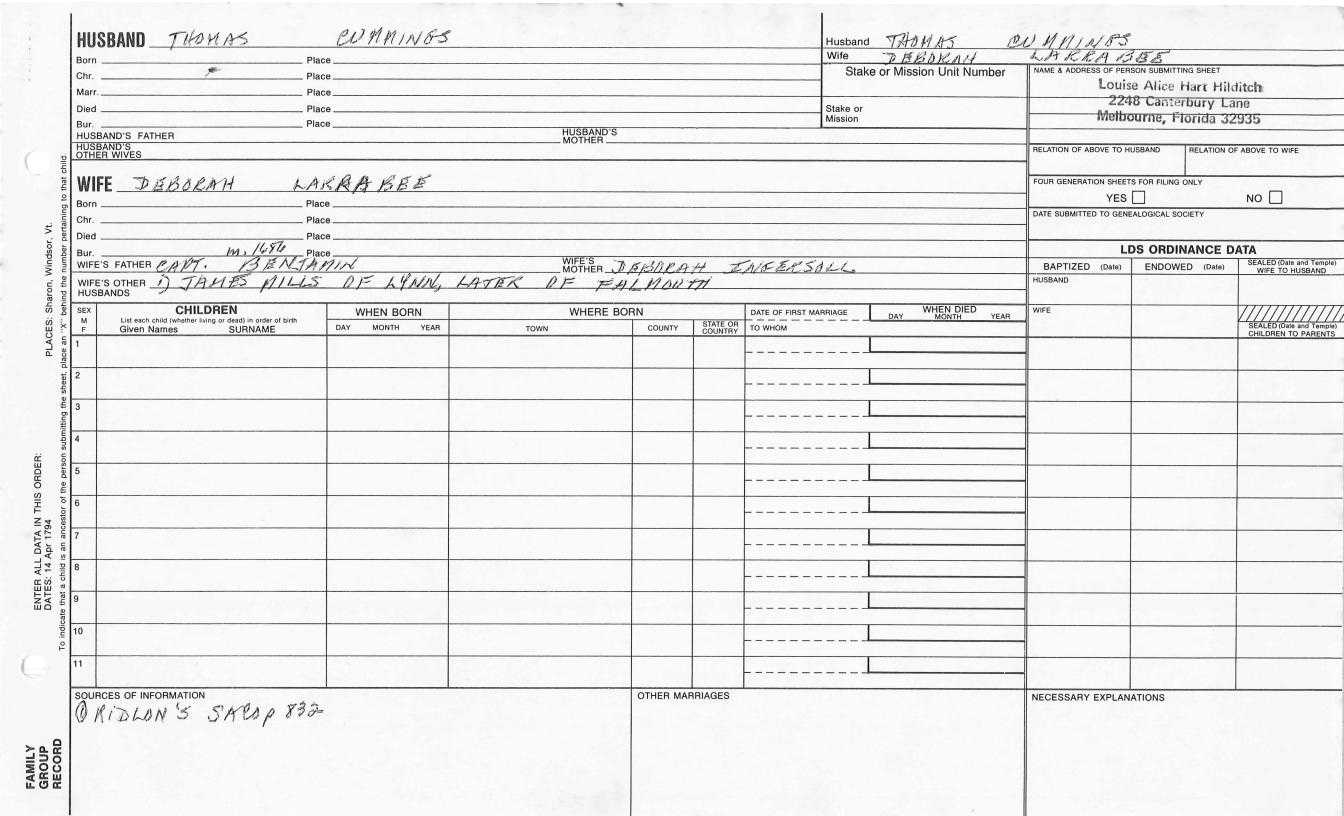 HUSBAND THOMAS CUMMINGS
Born Place
Chr. Place
Marr. Place
Died Place
Bur. Place
HUSBAND'S FATHER HUSBAND'S MOTHER
HUSBAND'S OTHER WIVES
Husband THOMAS CUMMINGS
Wife DEBORAH LARRABEE
Stake or Mission Unit Number
Stake or Mission
NAME & ADDRESS OF PERSON SUBMITTING SHEET
Louise Alice Hart Hilditch
2248 Canterbury Lane
Melbourne, Florida 32935
RELATION OF ABOVE TO HUSBAND RELATION OF ABOVE TO WIFE
FOUR GENERATION SHEETS FOR FILING ONLY
YES NO
DATE SUBMITTED TO GENEALOGICAL SOCIETY
WIFE DEBORAH LARRABEE
Born Place
Chr. Place
Died Place
Bur. Place
m. 1686
WIFE'S FATHER CAPT. BENJAMIN WIFE'S MOTHER DEBORAH INGERSOLL
WIFE'S OTHER HUSBANDS 1) JAMES MILLS OF LYNN, LATER OF FALMOUTH
LDS ORDINANCE DATA
BAPTIZED (Date) ENDOWED (Date) SEALED (Date and Temple) WIFE TO HUSBAND
HUSBAND
WIFE
SEALED (Date and Temple) CHILDREN TO PARENTS
SEX M F
CHILDREN
List each child (whether living or dead) in order of birth
Given Names SURNAME
WHEN BORN
DAY MONTH YEAR
WHERE BORN
TOWN COUNTY STATE OR COUNTRY
DATE OF FIRST MARRIAGE
TO WHOM
WHEN DIED
DAY MONTH YEAR
1
2
3
4
5
6
7
8
9
10
11
SOURCES OF INFORMATION
① RIDLON'S SACO p 832
OTHER MARRIAGES
NECESSARY EXPLANATIONS
PLACES: Sharon, Windsor, Vt.
ENTER ALL DATA IN THIS ORDER:
DATES: 14 Apr 1794
To indicate that a child is an ancestor of the person submitting the sheet, place an "X" behind the number pertaining to that child.
FAMILY
GROUP
RECORD